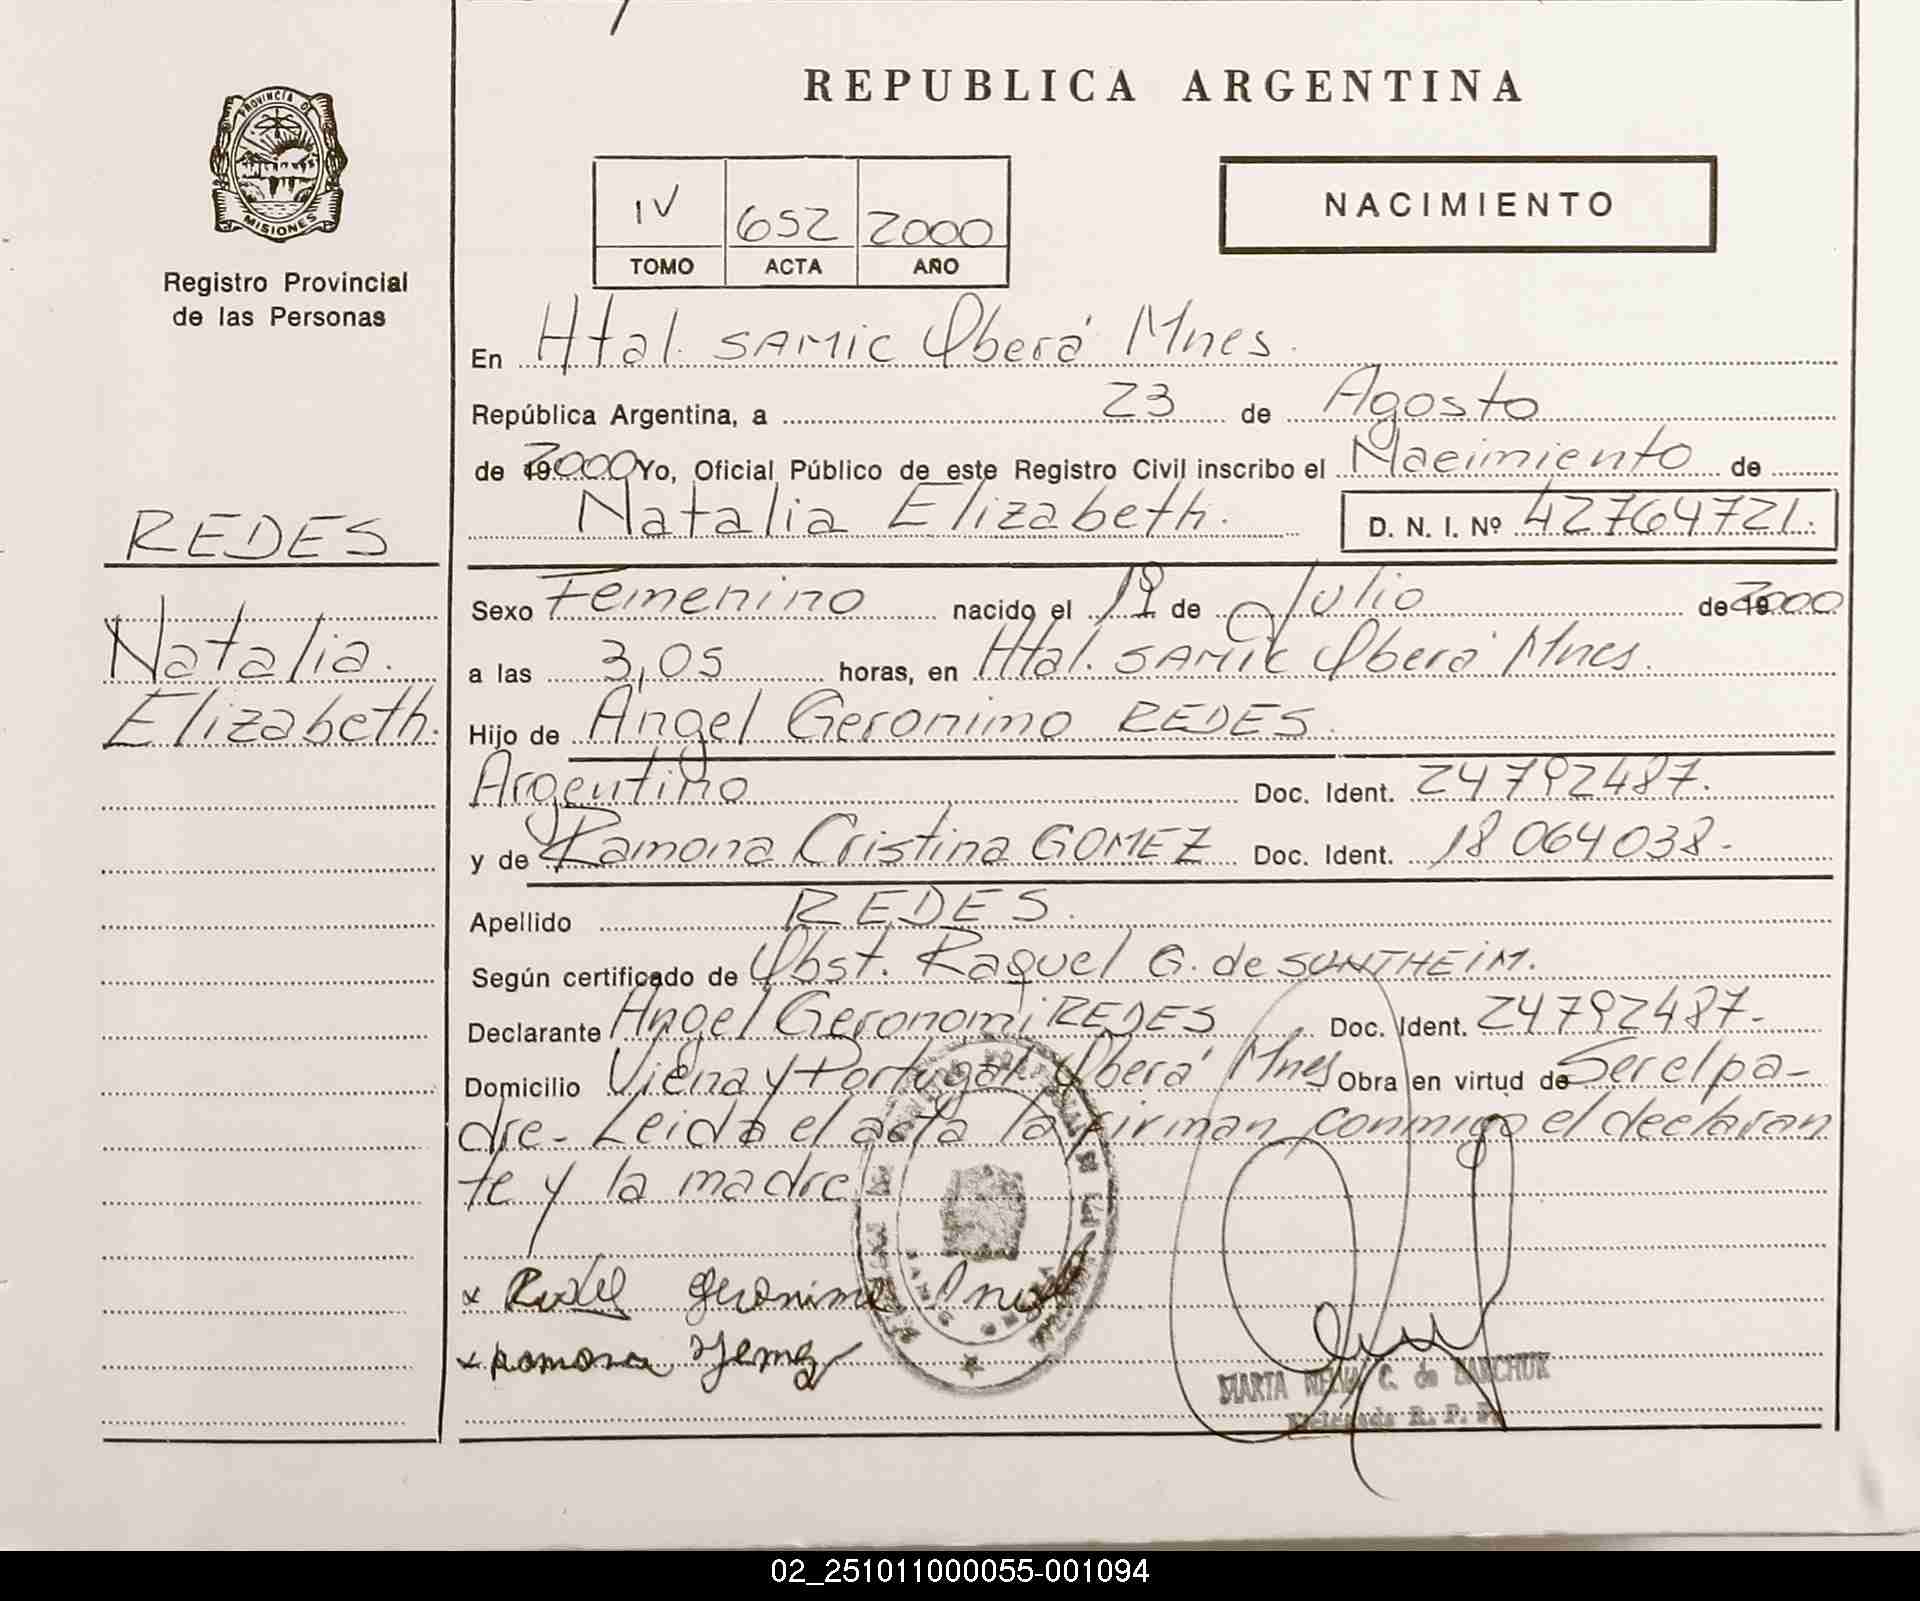 REPUBLICA ARGENTINA
PROVINCIA DE
MISIONES
Registro Provincial
de las Personas
NACIMIENTO
IV 652 2000
TOMO ACTA AÑO
En Htal. SAMIC Oberá Mnes.
República Argentina, a 23 de Agosto
de 19 2000 Yo, Oficial Público de este Registro Civil inscribo el Nacimiento de
Natalia Elizabeth. D. N. I. Nº 42764721.
REDES
Natalia
Elizabeth.
Sexo Femenino nacido el 19 de Julio de 19 2000
a las 3,05 horas, en Htal. SAMIC Oberá Mnes.
Hijo de Angel Geronimo REDES.
Argentino Doc. Ident. 24792487.
y de Ramona Cristina GOMEZ Doc. Ident. 18064038-
Apellido REDES.
Según certificado de Obst. Raquel G. de SONTHEIM.
Declarante Angel Geronomi REDES Doc. Ident. 24792487-
Domicilio Viena y Portugal Oberá Mnes Obra en virtud de Ser el pa-
dre- Leida el acta la firman conmigo el declaran
te y la madre
x Geronimo
x Ramona
MARTA C. de
R. P. P.
02_251011000055-001094